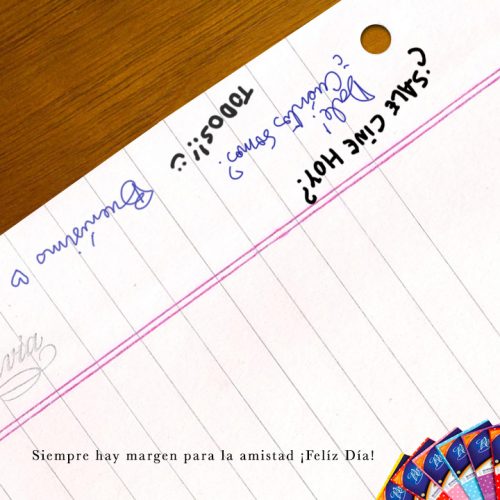 ¿SALE CINE HOY?
Dale!
¿Cuántos somos?
TODOS!!!
Buenísimo
Siempre hay margen para la amistad ¡Felíz Día!